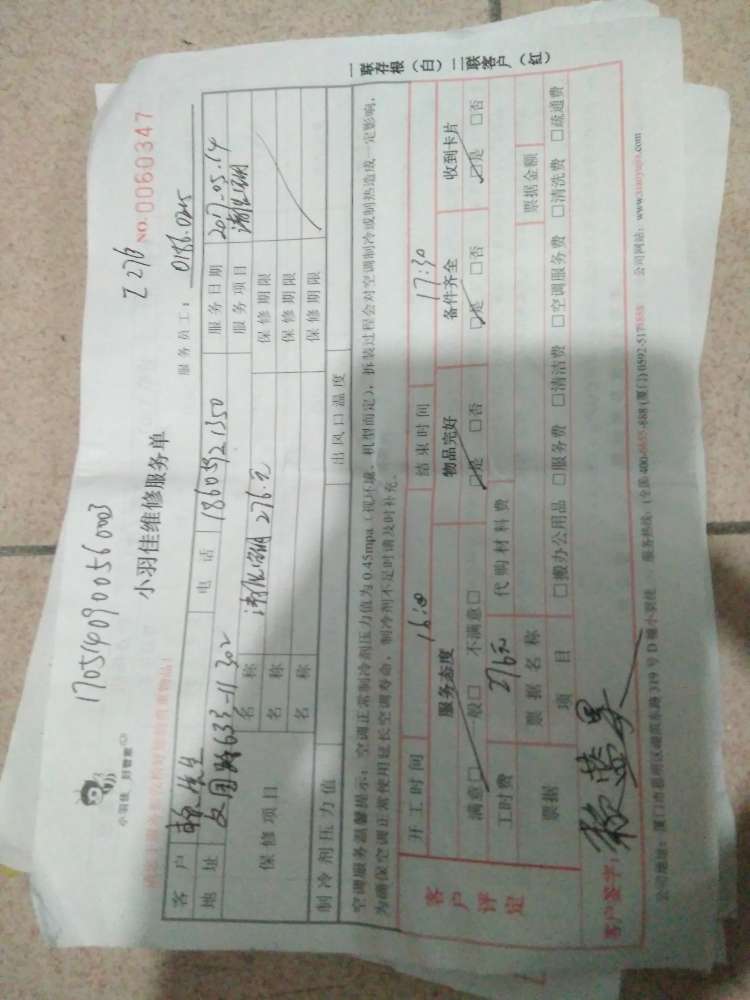 1705140900560003
Z 276
小羽佳 好管家
小羽佳维修服务单
NO.0060347
服务员工： 0186.0245
客户 赖先生 电话 18605921350 服务日期 2017.05.14
地址 文园路63号-11 302 服务项目
保修项目 名称 276元 保修期限
名称 保修期限
名称 保修期限
制冷剂压力值 出风口温度
空调服务温馨提示：空调正常制冷剂压力值为0.45mpa（视环境、机型而定），拆装过程会对空调制冷或制热造成一定影响，
为确保空调正常使用延长空调寿命，制冷剂不足时请及时补充。
客户评定
开工时间 16:00 结束时间 17:30
服务态度 物品完好 备件齐全 收到卡片
满意□ 一般□ 不满意□ □是 □否 □是 □否 □是 □否
工时费 276元 代购材料费
票据 票据名称 票据金额
项目 □搬办公用品 □服务费 □清洁费 □空调服务费 □清洗费 □疏通费
客户签字：
公司地址：厦门市思明区湖滨东路319号D幢小羽佳 服务热线：(全国)400-6655-888 (厦门)0592-5175888 公司网站：www.xiaoyujia.com
一联存根（白）二联客户（红）